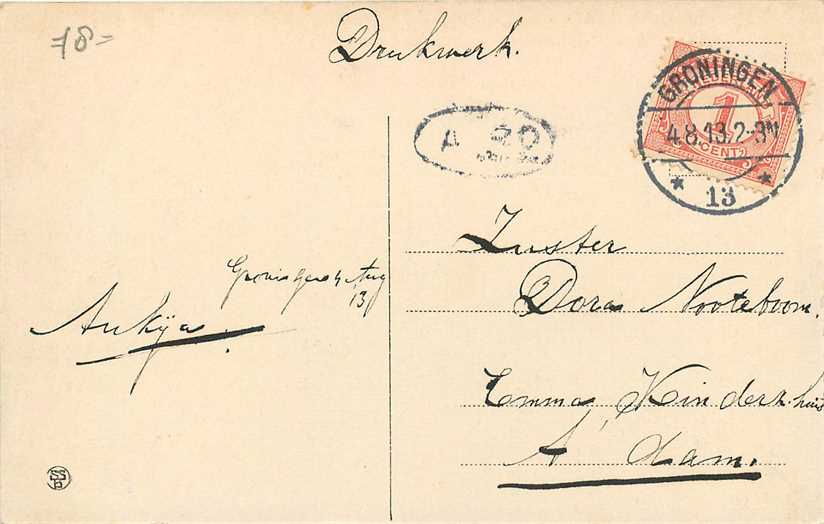 78-
Drukwerk.
GRONINGEN
4.8.13.2-3N
13
1
CENT
A
Zuster
Dora Nooteboom.
Emma, Kinderz.huis
A'dam.
Groningen 4 Aug
13
SS
B